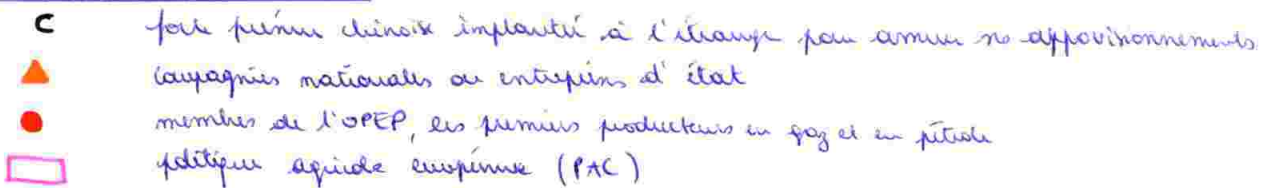 C forte présence chinoise implantée à l'étranger pour assurer ses approvisionnements
compagnies nationales ou entreprises d'état
membres de l'OPEP, les premiers producteurs en gaz et en pétrole
politique agricole européenne (PAC)